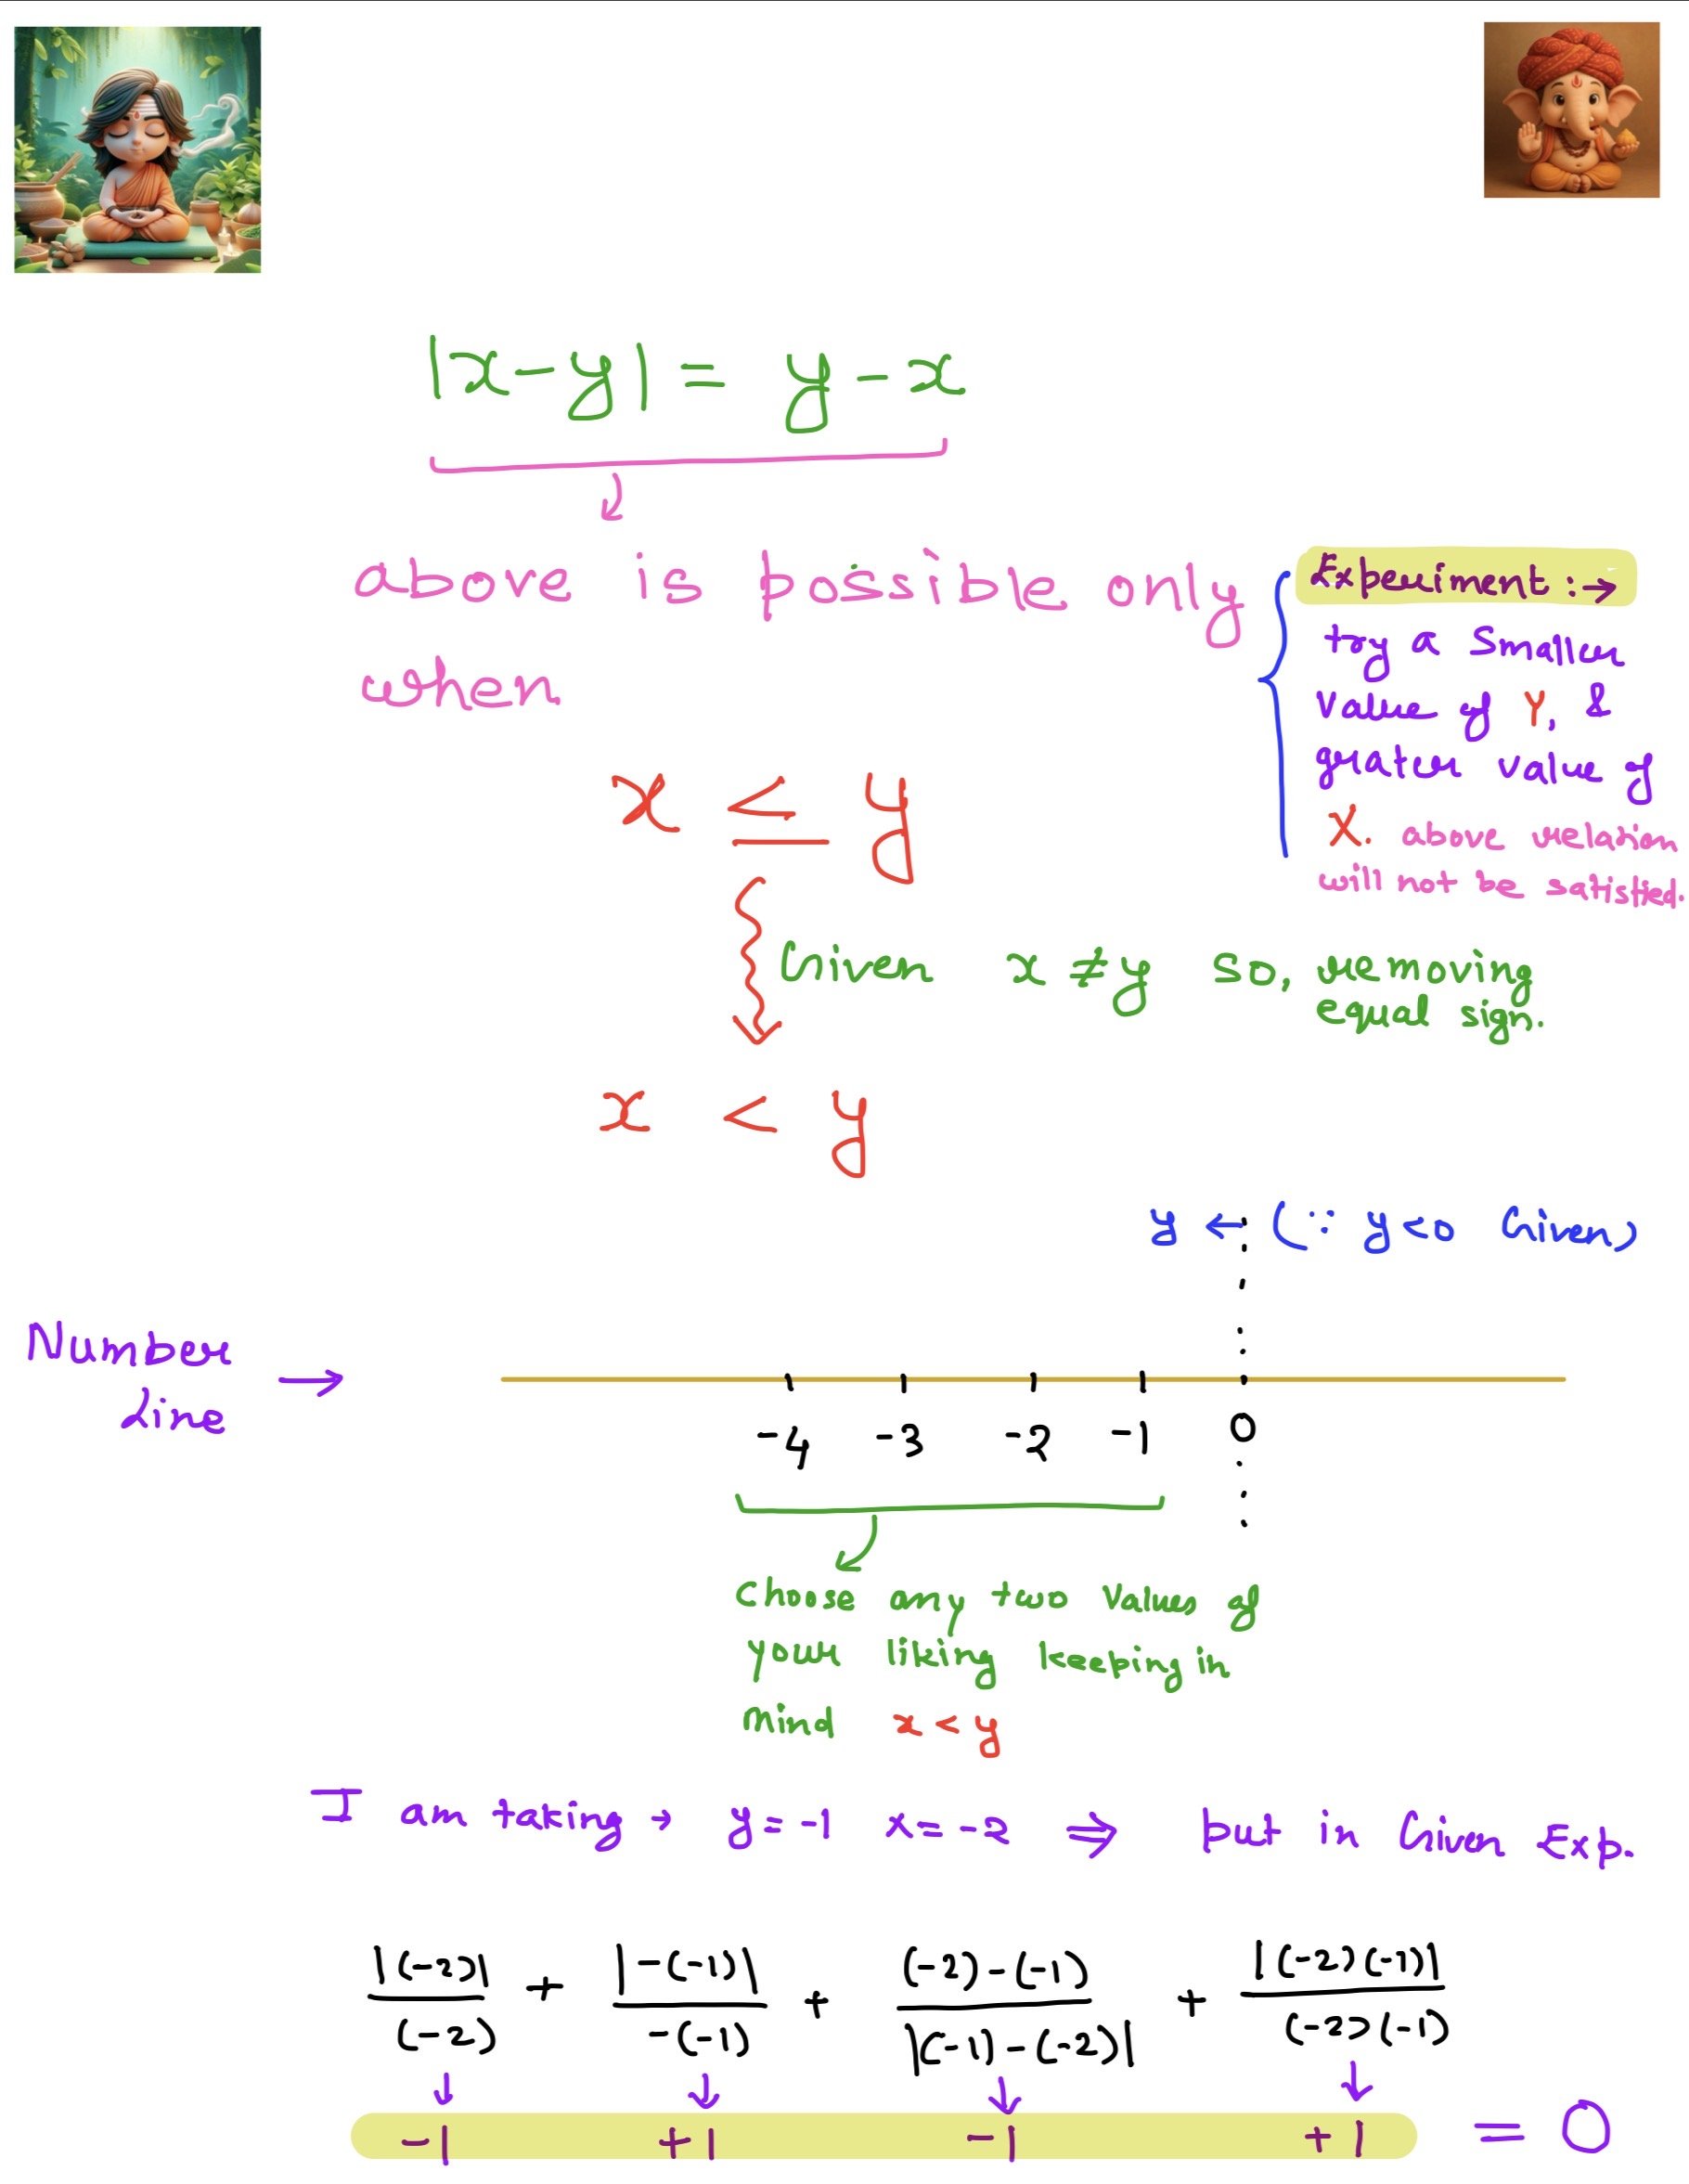 |x-y| = y-x
above is possible only
when
Experiment :→
try a smaller
value of Y, &
greater value of
X. above relation
will not be satisfied.
x ≤ y
Given x ≠ y so, removing
equal sign.
x < y
y ← (∵ y<0 Given)
Number
Line →
-4 -3 -2 -1 0
Choose any two values of
your liking keeping in
mind x < y
I am taking → y = -1 x = -2 ⇒ put in Given Exp.
|(-2)|/(-2) + |-(-1)|/-(-1) + (-2)-(-1)/|(-1)-(-2)| + |(-2)(-1)|/(-2)(-1)
↓ ↓ ↓ ↓
-1 +1 -1 +1 = 0